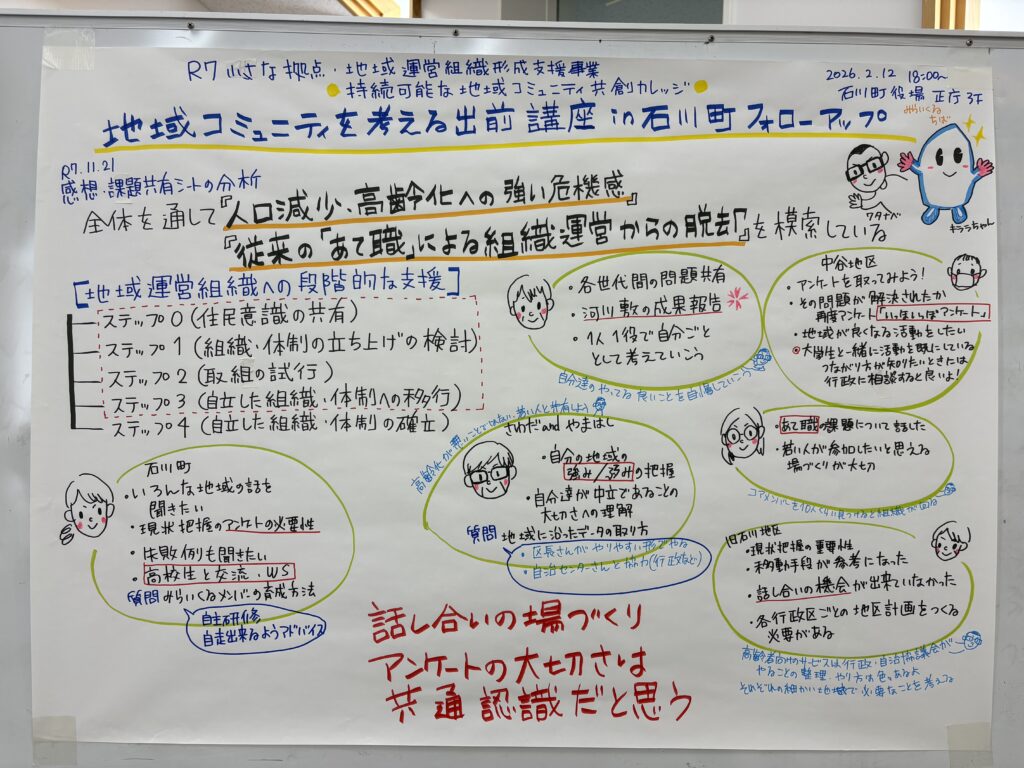 R7 小さな拠点・地域運営組織形成支援事業
持続可能な地域コミュニティ共創カレッジ
地域コミュニティを考える出前講座 in 石川町 フォローアップ
2026.2.12 18:00~
石川町役場 正庁 3F
みらいくる
ちば
ワタナベ
キララちゃん
R7.11.21
感想・課題共有シートの分析
全体を通して『人口減少、高齢化への強い危機感』
『従来の「あて職」による組織運営からの脱去』を模索している
[地域運営組織への段階的な支援]
ステップ0(住民意識の共有)
ステップ1(組織・体制の立ち上げの検討)
ステップ2(取組の試行)
ステップ3(自立した組織・体制への移行)
ステップ4(自立した組織・体制の確立)
・各世代間の問題共有
・河川敷の成果報告
・1人1役で自分ごと
として考えていこう
自分達のやってる良いことを自慢していこう
中谷地区
・アンケートを取ってみよう!
・その問題が解決されたか
再度アンケート
・地域が良くなる活動をしたい
・大学生と一緒に活動を既にしている
つながり方が知りたいときは
行政に相談すると良いよ!
・あて職の課題について話した
・若い人が参加したいと思える
場づくりが大切
さわだ and やまはし
・自分の地域の
強み/弱みの把握
・自分達が中立であることの
大切さへの理解
質問 地域に沿ったデータの取り方
・区長さんがやりやすい形でやる
・自治センターさんと協力(行政など)
石川町
・いろんな地域の話を
聞きたい
・現状把握のアンケートの必要性
・失敗例も聞きたい
・高校生と交流、WS
質問 みらいくるメンバーの育成方法
自主研修
自走出来るようアドバイス
旧石川地区
・現状把握の重要性
・移動手段が参考になった
・話し合いの機会が出来ていなかった
・各行政区ごとの地区計画をつくる
必要がある
高齢者向けのサービスは行政・自治協議会が
やることの整理、やり方は色々ある
それぞれの細かい地域で必要なことを考える
話し合いの場づくり
アンケートの大切さは
共通認識だと思う